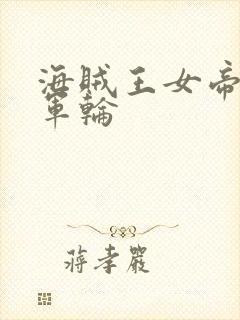 海賊王女帝
軍輪
蔣孝嚴